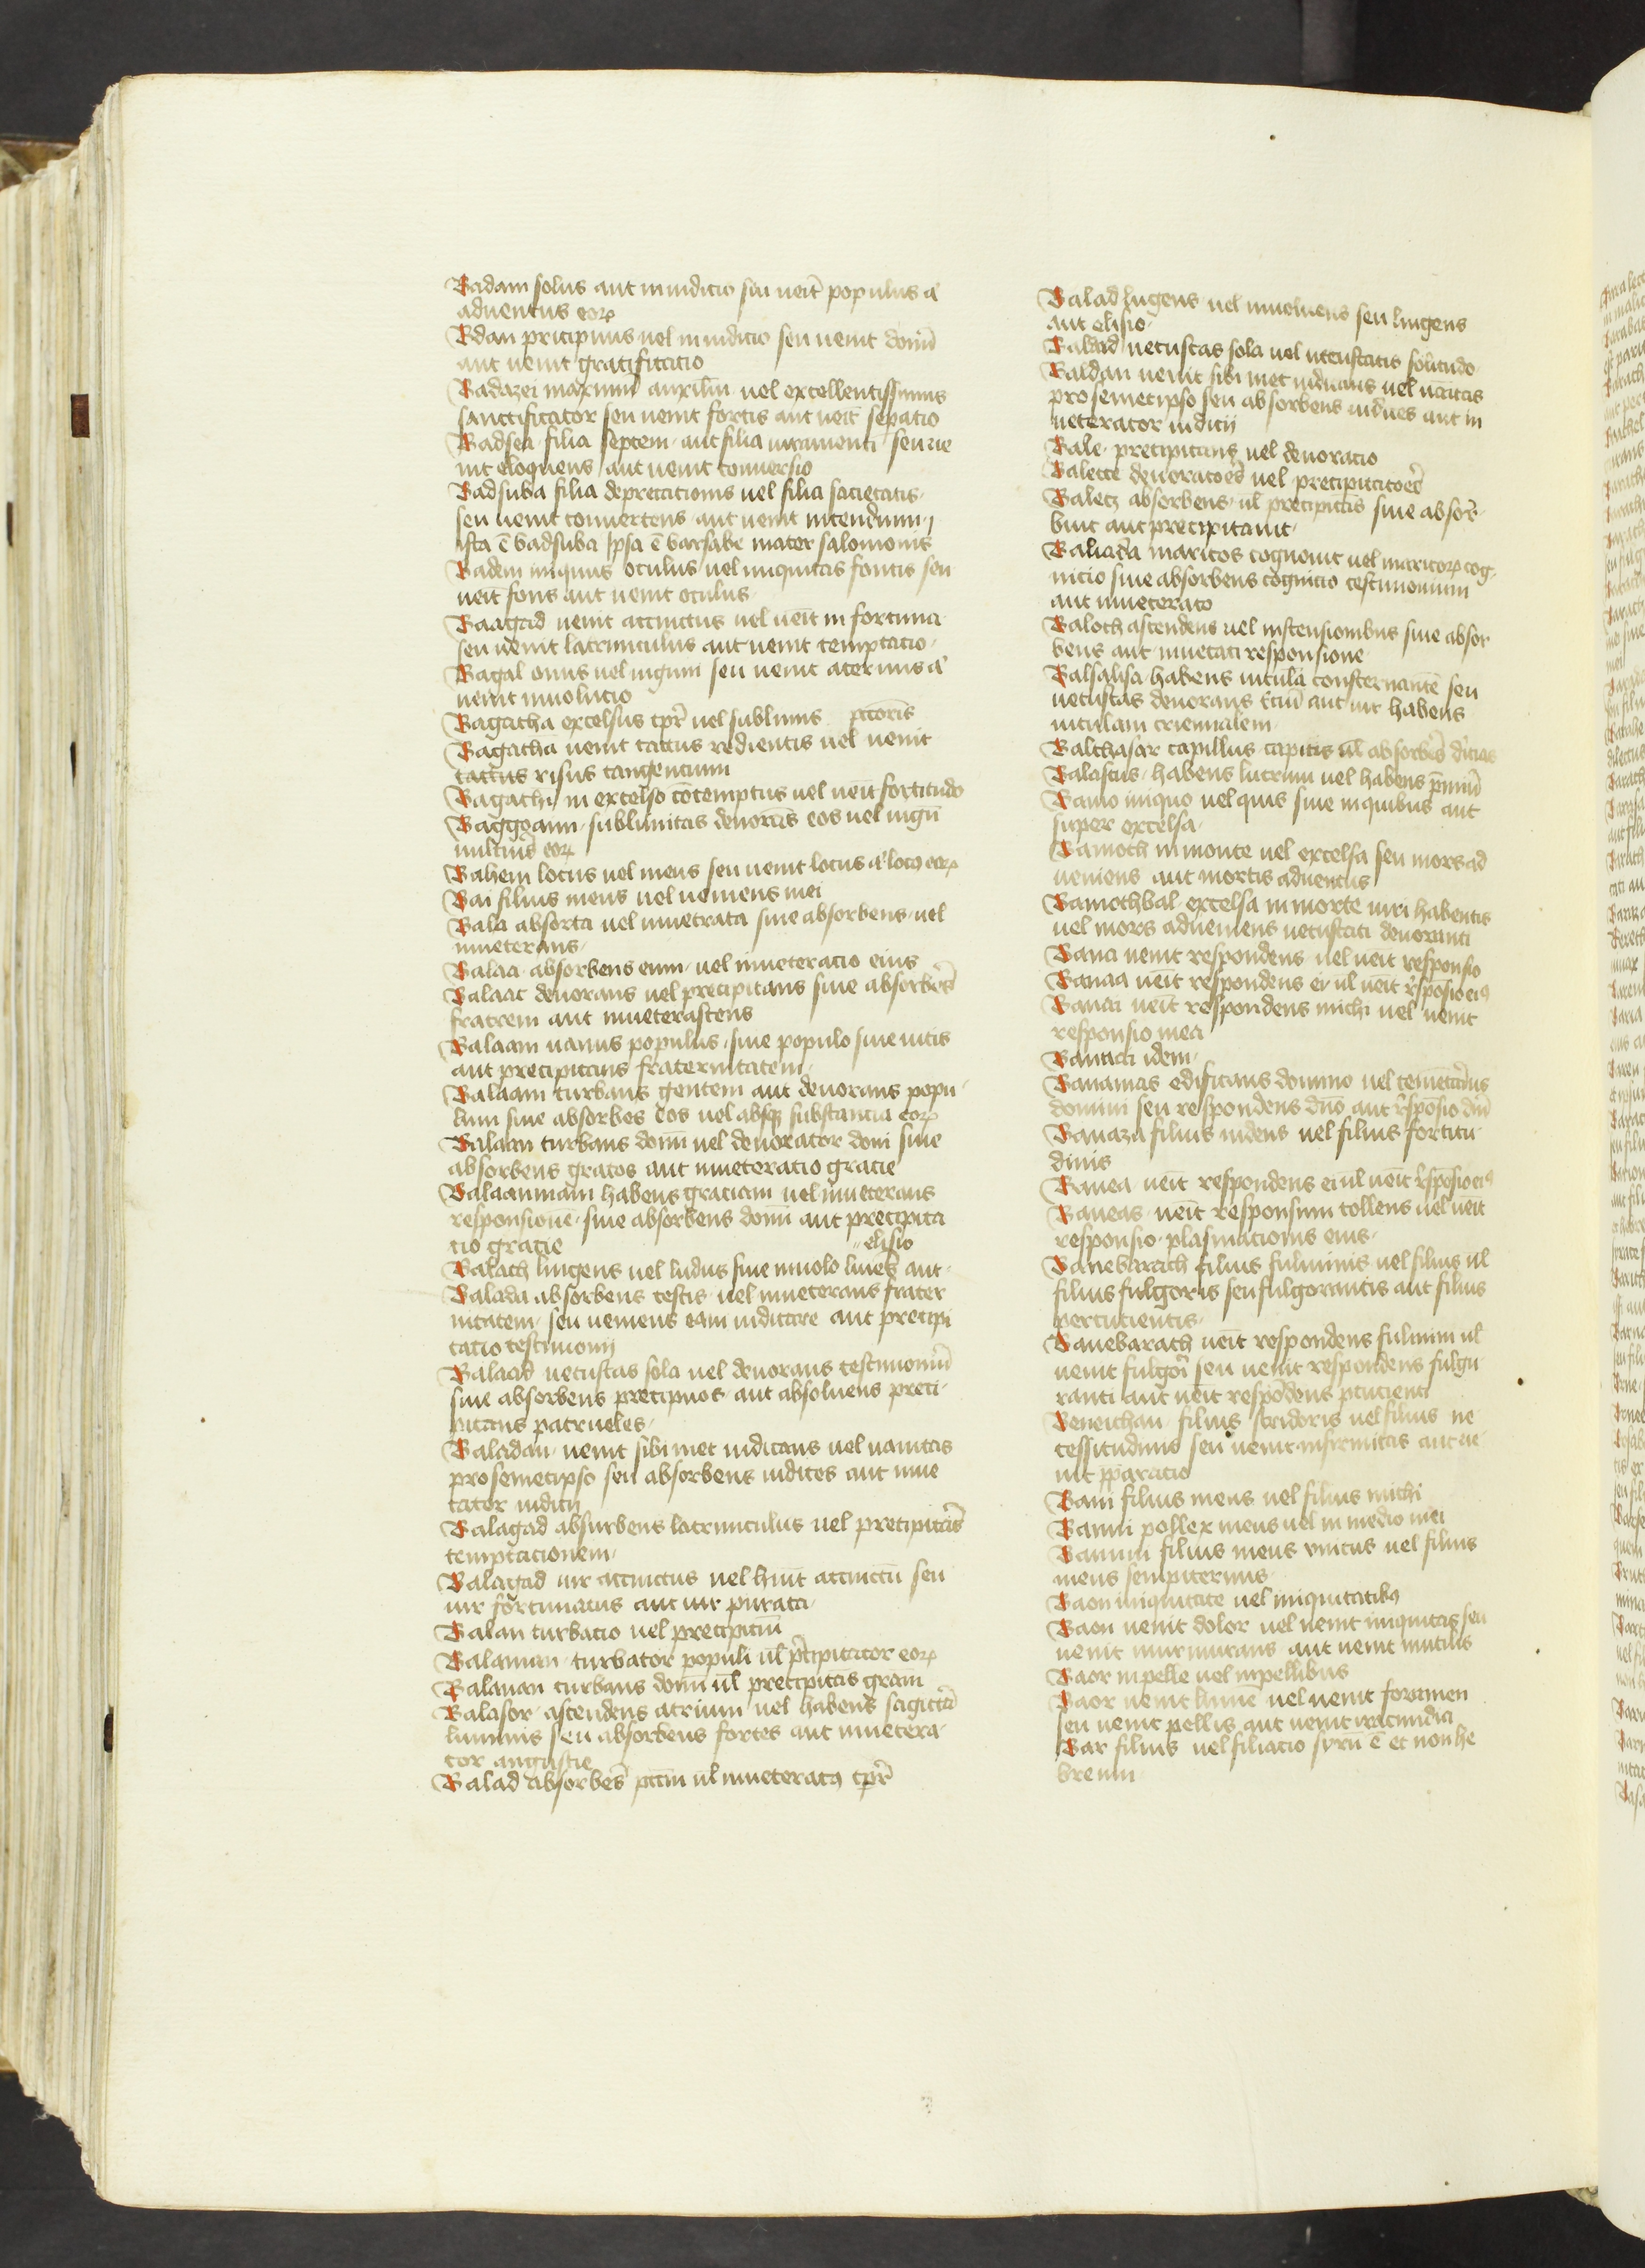 Badam solus aut in iudicio seu ueit populus a͛
aduentus eoꝝ
Bdan precipuus uel in iudicio seu uenit donū
aut uenit gratificatio
Badazei maximū auxiliū uel excellentissimus
sanctificator seu uenit fortis aut ueīt sepatio
Badsea filia septem aut filia iuramenti seu ue
nit eloquens aut uenit conuersio
Badsuba filia deprecationis uel filia sacietatis
seu uenit conuertens aut uenit
ista ē badsuba Ipsa ē barsabe mater salomonis
Badem iniquus oculus uel iniquitas fontis seu
ueīt fons aut uenit oculus
Baagad uenit accinctus uel ueīt in fortuna
seu uenit latrunculus aut uenit temptatio
Bagal onus uel iugum seu uenit aceruus a͛
uenit inuolutio
Bagatha excelsus tp̄r uel sublimis pctoris
Bagatha uenit tactus redientis uel uenit
tactus risus tangentium
Bagathi in excelso cōtemptus uel ueīt fortitudo
Baggoam sublimitas deuorās eos uel iugū
eoꝝ
Bahem locus uel meus seu uenit locus a͛ locꝰ eoꝝ
Bai filius meus uel ueniens mei
Bala absorta uel inuetrata siue absorbens uel
inueterans
Balaa absorbens eum uel inueteratio eius
Balaac deuorans uel precipitans siue absorbēs
fratrem aut inueterascens
Balaam uanus populus siue populo siue uitis
aut precipitans fraternitatem
Balaam turbans gentem aut deuorans popu
lum siue absorbēs eos uel absqꝫ substantia eoꝝ
Balaan turbans donū uel deuorator doni siue
absorbens gratos aut inueteratio gracie
Balaannam habens graciam uel inueterans
responsionē siue absorbens donū aut precipita
tio gracie elisio
Balach lingens uel ludus siue inuoluēs aut
Balada absorbens testis uel inueterans frater
nitatem seu ueniens eam iudicare aut precipi
tatio testimonij
Balaad uetustas sola uel deuorans testimoniū
siue absorbens precipuos aut absoluens preci
pitans patrueles
Baladan uenit sibi met iudicans uel uanitas
pro semetipso seu absorbens iudices aut inue
tator iudicij
Balagad absurbens latrunculus uel precipitās
temptacionem
Balagad uir accinctus uel accinctū seu
uir fortunatus aut uir
Balan turbacio uel precipiciū
Balanan turbator populi ul̄ p̄cipitator eoꝝ
Balanan turbans donū ul̄ precipitās grām
Balasor ascendens atrium uel habens sagittā
luminis seu absorbens fortes aut inuetera
tor angustie
Balad absorbēs pctm̄ ul̄ inueteratꝰ tp̄r
Balad lugens uel inuoluens seu lingens
aut elisio
Baldad uetustas sola uel uetustatis solitudo
Baldan uenit sibi met iudicans uel uanitas
pro semetipso seu absorbens iudices aut in
ueterator iudicij
Bale precipitans uel deuoratio
Balecte deuoratoēs uel precipitatoēs
Balecz absorbens ul̄ precipitās siue absor
buit aut precipitauit
Baliada maritos cognouit uel maritoꝝ cog
nitio siue absorbens cognitio testimonium
aut inueterato
Baloth ascendens uel in ascensionibus siue absor
bens aut inuetati responsione
Balsalisa habens uitulā consternantē seu
uetustas deuorans aut uir habens
uitulam triennalem
Balthasar capillus capitis ul̄ absorbēs
Balastus habens lucrum uel habens p̄miū
Bamo iniquo uel quis siue in quibus aut
super excelsa
Bamoth in monte uel excelsa seu mors ad
ueniens aut mortis aduentus
Bamothbal excelsa in morte uiri habentis
uel mors adueniens uetustati deuoranti
Bana uenit respondens uel ueīt responsio
Banaa ueīt respondens ei ul̄ ueīt rsposio eiꝰ
Banai ueīt respondens michi uel uenit
responsio mea
Banaai idem
Banamas edificans domino uel
domini seu respondens dn̄o aut rsposio dn̄i
Banaza filius uidens uel filius fortitu
dinis
Banea ueīt respondens ei ul̄ ueīt rsposio eiꝰ
Baneas ueīt responsum tollens uel ueīt
responsio plasmationis eius
Banebarach filius fulminis uel filius ul̄
filius fulgoris seu fulgorantis aut filius
percutientis
Banebarach ueīt respondens fulmini ul̄
uenit fulgori seu uenit respondens fulgu
ranti aut ueīt respōdens pcucienti
Beneichan filius stridoris uel filius ne
cessitudinis seu uenit infirmitas aut ue
nit pparatio
Bani filius meus uel filius michi
Banni pollex meus uel in medio mei
Bannu filius meus vnicus uel filius
meus sempiternus
Baon iniquitate uel iniquitatibꝰ
Baon uenit dolor uel uenit iniquitas seu
uenit murmurans aut uenit mutus
Baor in pelle uel in pellibus
Baor uenit lumē uel uenit foramen
seu uenit pellis aut uenit iracundia
Bar filius uel filiatio syrū ē et non he
breum